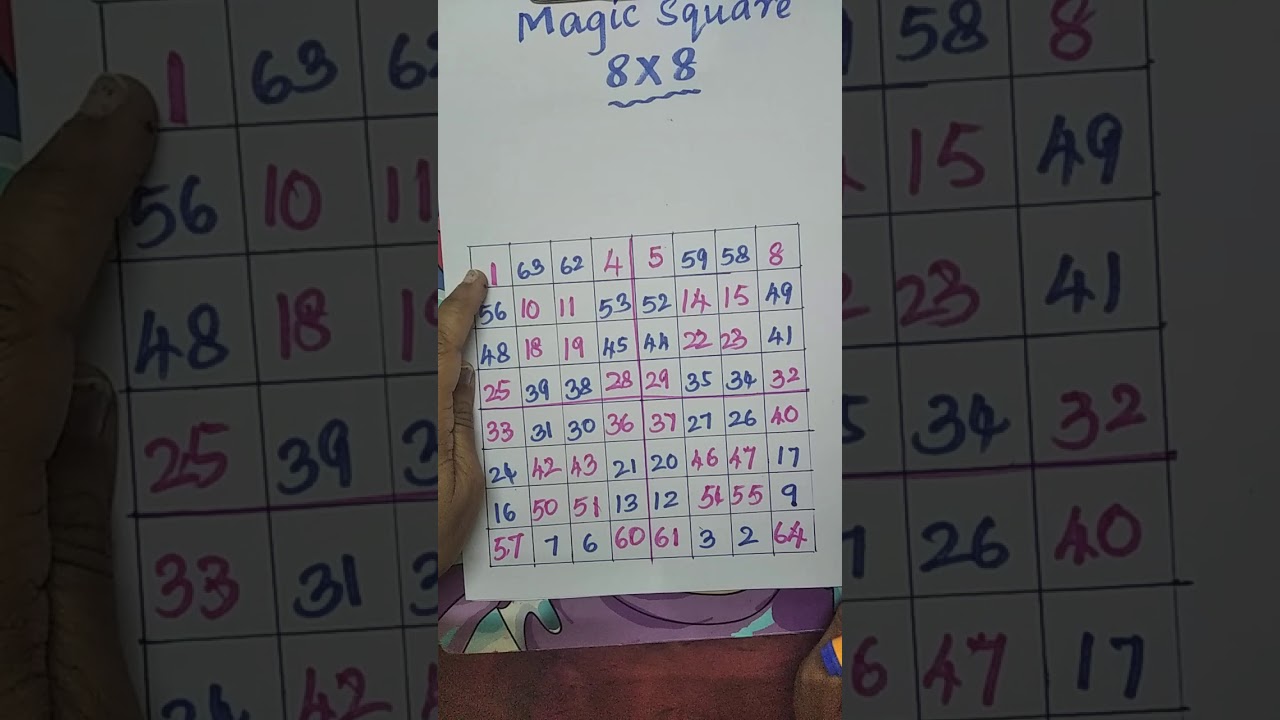 Magic Square
8X8
1 63 62 4 5 59 58 8
56 10 11 53 52 14 15 49
48 18 19 45 44 22 23 41
25 39 38 28 29 35 34 32
33 31 30 36 37 27 26 40
24 42 43 21 20 46 47 17
16 50 51 13 12 54 55 9
57 7 6 60 61 3 2 64